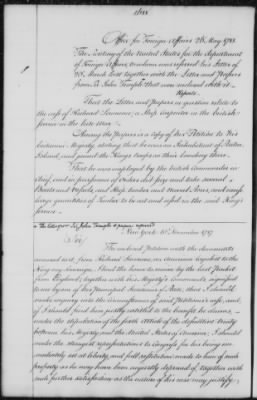 Office for Foreign Affairs 28. May 1788.
The Secretary of the United States for the department
of Foreign Affairs, to whom was referred his Letter of
28. March last together with the Letter and Papers
from Sir John Temple that were enclosed with it
Reports.
That the Letter and Papers in question relate to
the case of Richard a Ship Carpenter in the british
Service in the late War.
Among the Papers is a Copy of his Petition to His
britannic Majesty, stating that he was an Inhabitant of
Island, and joined the King's troops on their landing there.
That he was employed by the british Commander in
Chief, and in pursuance of Orders did and take several
Boats and Vessels, and Ship timber and Naval Stores, and
large quantities of Timber to be cut and used in the said King's
Service.
The Letter from Sir John Temple & paper referred
New-York 10 November 1787
The enclosed Petition with the documents
annexed to it, from Richard an American Loyalist to the
King my Sovereign, I had the honor to receive by the last Packet
from England, together with His Majesty's Commands, signified
to me by one of his Principal Secretaries of State, that I should
make enquiry into the circumstances of said Petitioner's case, and,
if I should find him justly entitled to the benefit he claims,
under the stipulation of the article of the definitive treaty
between his Majesty and the United States of America; I should
make the strongest representations to Congress for his being
immediately set at liberty, and full restitution made to him of such
property as he may have been unjustly deprived of, together with
such further satisfaction as the nature of his case may justify;